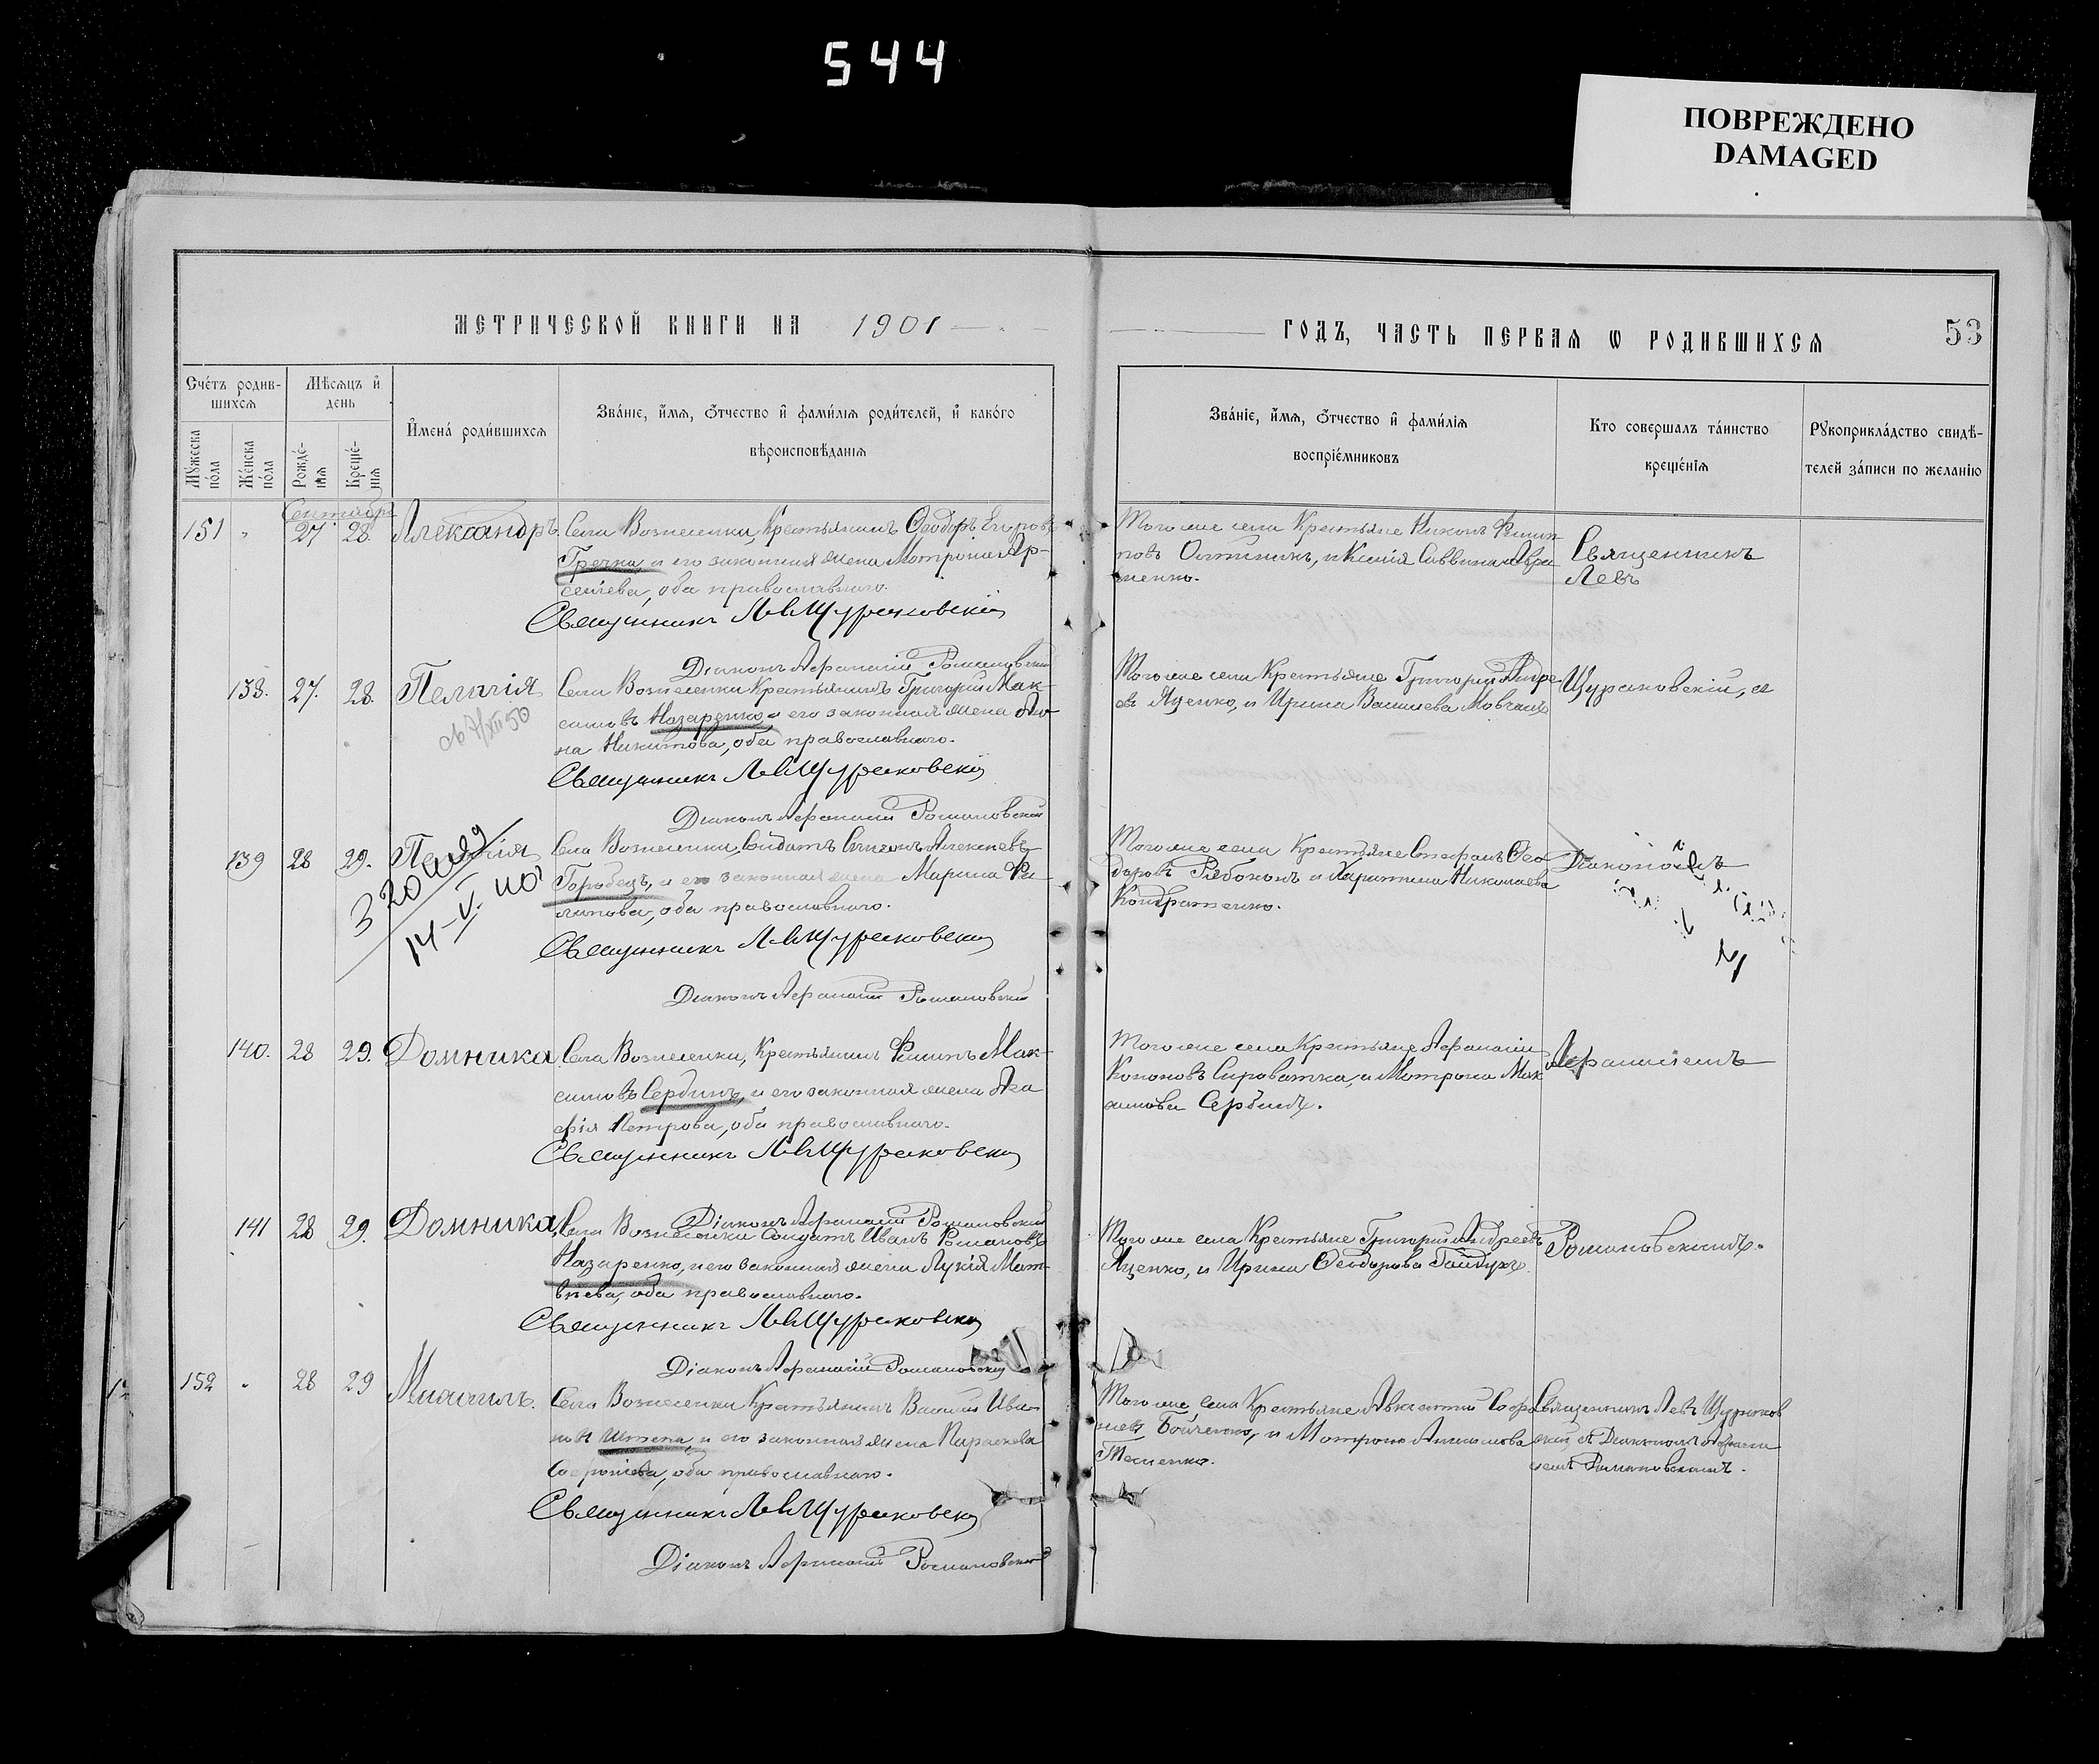 544
ПОВРЕЖДЕНО
DAMAGED
МЕТРИЧЕСКОЙ КНИГИ НА 1901
ГОДЪ, ЧАСТЬ ПЕРВАЯ Ѡ РОДИВШИХСЯ
53
Счетъ родив-
шихся
Мѣсяцъ и
день
Имена родившихся
Званіе, имя, отчество и фамилія родителей, и какого
вѣроисповѣданія
Мужеска пола
Женска пола
Рожде-
нія
Креще-
нія
Званіе, имя, отчество и фамилія
воспріемниковъ
Кто совершалъ таинство
крещенія
Рукоприкладство свидѣ-
телей записи по желанію
Сентябрь
151 27 28. Александръ. Села Вознесенки, Крестьянинъ Ѳеодоръ Егоровъ
Гречка, и его законная жена Мотрона Ар-
сеніева, оба православнаго.
Священникъ Левъ Щуреновскій
Діаконъ Аѳанасій Романовскій
Того же села Крестьяне Никонъ Филип
повъ и Ксенія Саввина
менко.
Священникъ
Левъ
138. 27. 28. Пелагія Села Вознесенки Крестьянинъ Григорій Мак-
симовъ Назаренко и его законная жена Ан-
на Никитова, оба православнаго.
Священникъ Левъ Щуреновскій
Діаконъ Аѳанасій Романовскій
Того же села Крестьяне Григорій Андре
евъ Яценко, и Ирина Васильева Мовчанъ
Щуреновскій, съ
139 28 29. Пелагія Села Вознесенки, Солдатъ Симеонъ Алексѣевъ
Горобецъ, и его законная жена Марина Фи
липова, оба православнаго.
Священникъ Левъ Щуреновскій
Діаконъ Аѳанасій Романовскій
14-V-
Того же села Крестьяне Стефанъ Ѳео
доровъ Рябоконь и Харитина Николаева
Кондратенко.
Діакономъ
140. 28 29. Домника Села Вознесенки, Крестьянинъ Филипъ Мак-
симовъ Сербинъ, и его законная жена Ага
фія Петрова, оба православнаго.
Священникъ Левъ Щуреновскій
Діаконъ Аѳанасій Романовскій
Того же села Крестьяне Аѳанасій
Кононовъ Сироватка, и Мотрона Мак
симова Сербинъ.
Аѳанасіемъ
141 28 29. Домника, Села Вознесенки Солдатъ Иванъ Романовъ
Назаренко, и его законная жена Лукія Мат-
вѣева, оба православнаго.
Священникъ Левъ Щуреновскій
Діаконъ Аѳанасій Романовскій
Того же села Крестьяне Григорій Андреевъ
Яценко, и Ирина Ѳеодорова Гайдукъ.
Романовскимъ.
152 28 29 Михаилъ. Села Вознесенки Крестьянинъ Василій Ива-
новъ Штепа, и его законная жена Параскева
Софроніева, оба православнаго.
Священникъ Левъ Щуреновскій
Діаконъ Аѳанасій Романовскій
Того же села Крестьяне Авксентій Софро
ніевъ Бойченко, и Мотрона
Тесленко.
Священникъ Левъ Щуренов
скій съ Діакономъ Аѳанасі
емъ Романовскимъ.